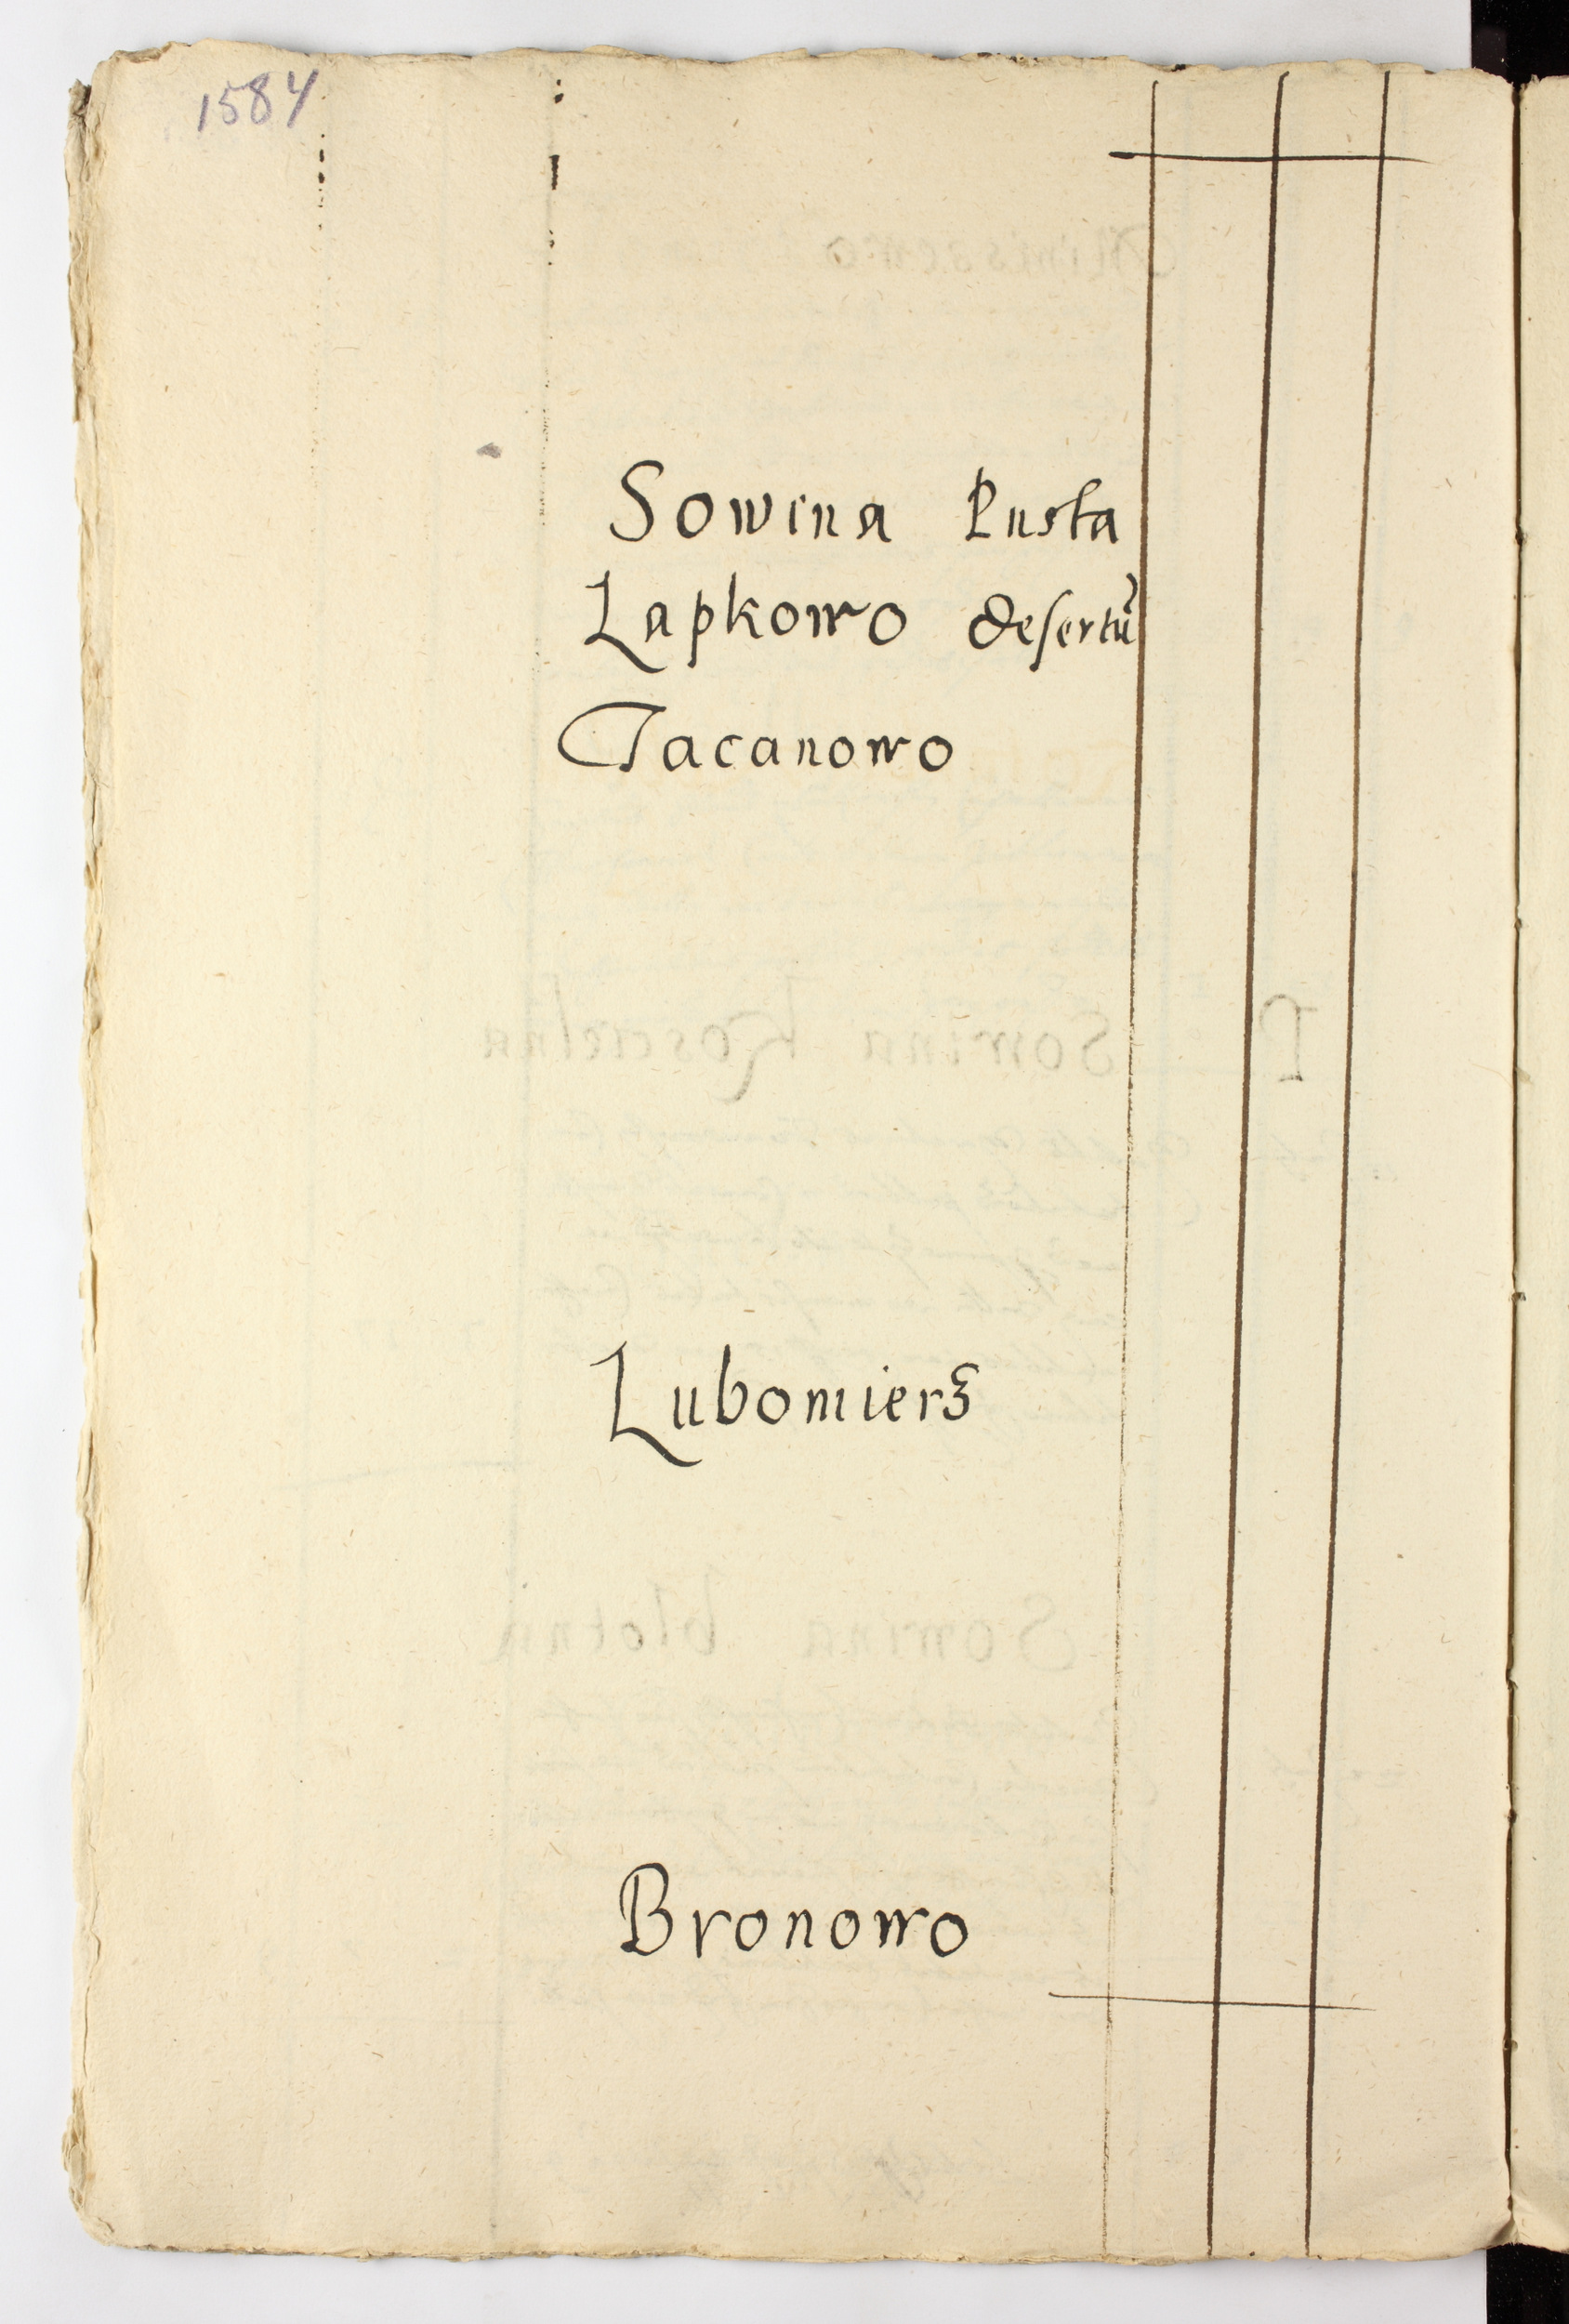 1584
Sowina Pusta
Lapkowo desertũ
Tacanowo
Lubomierz
Bronowo